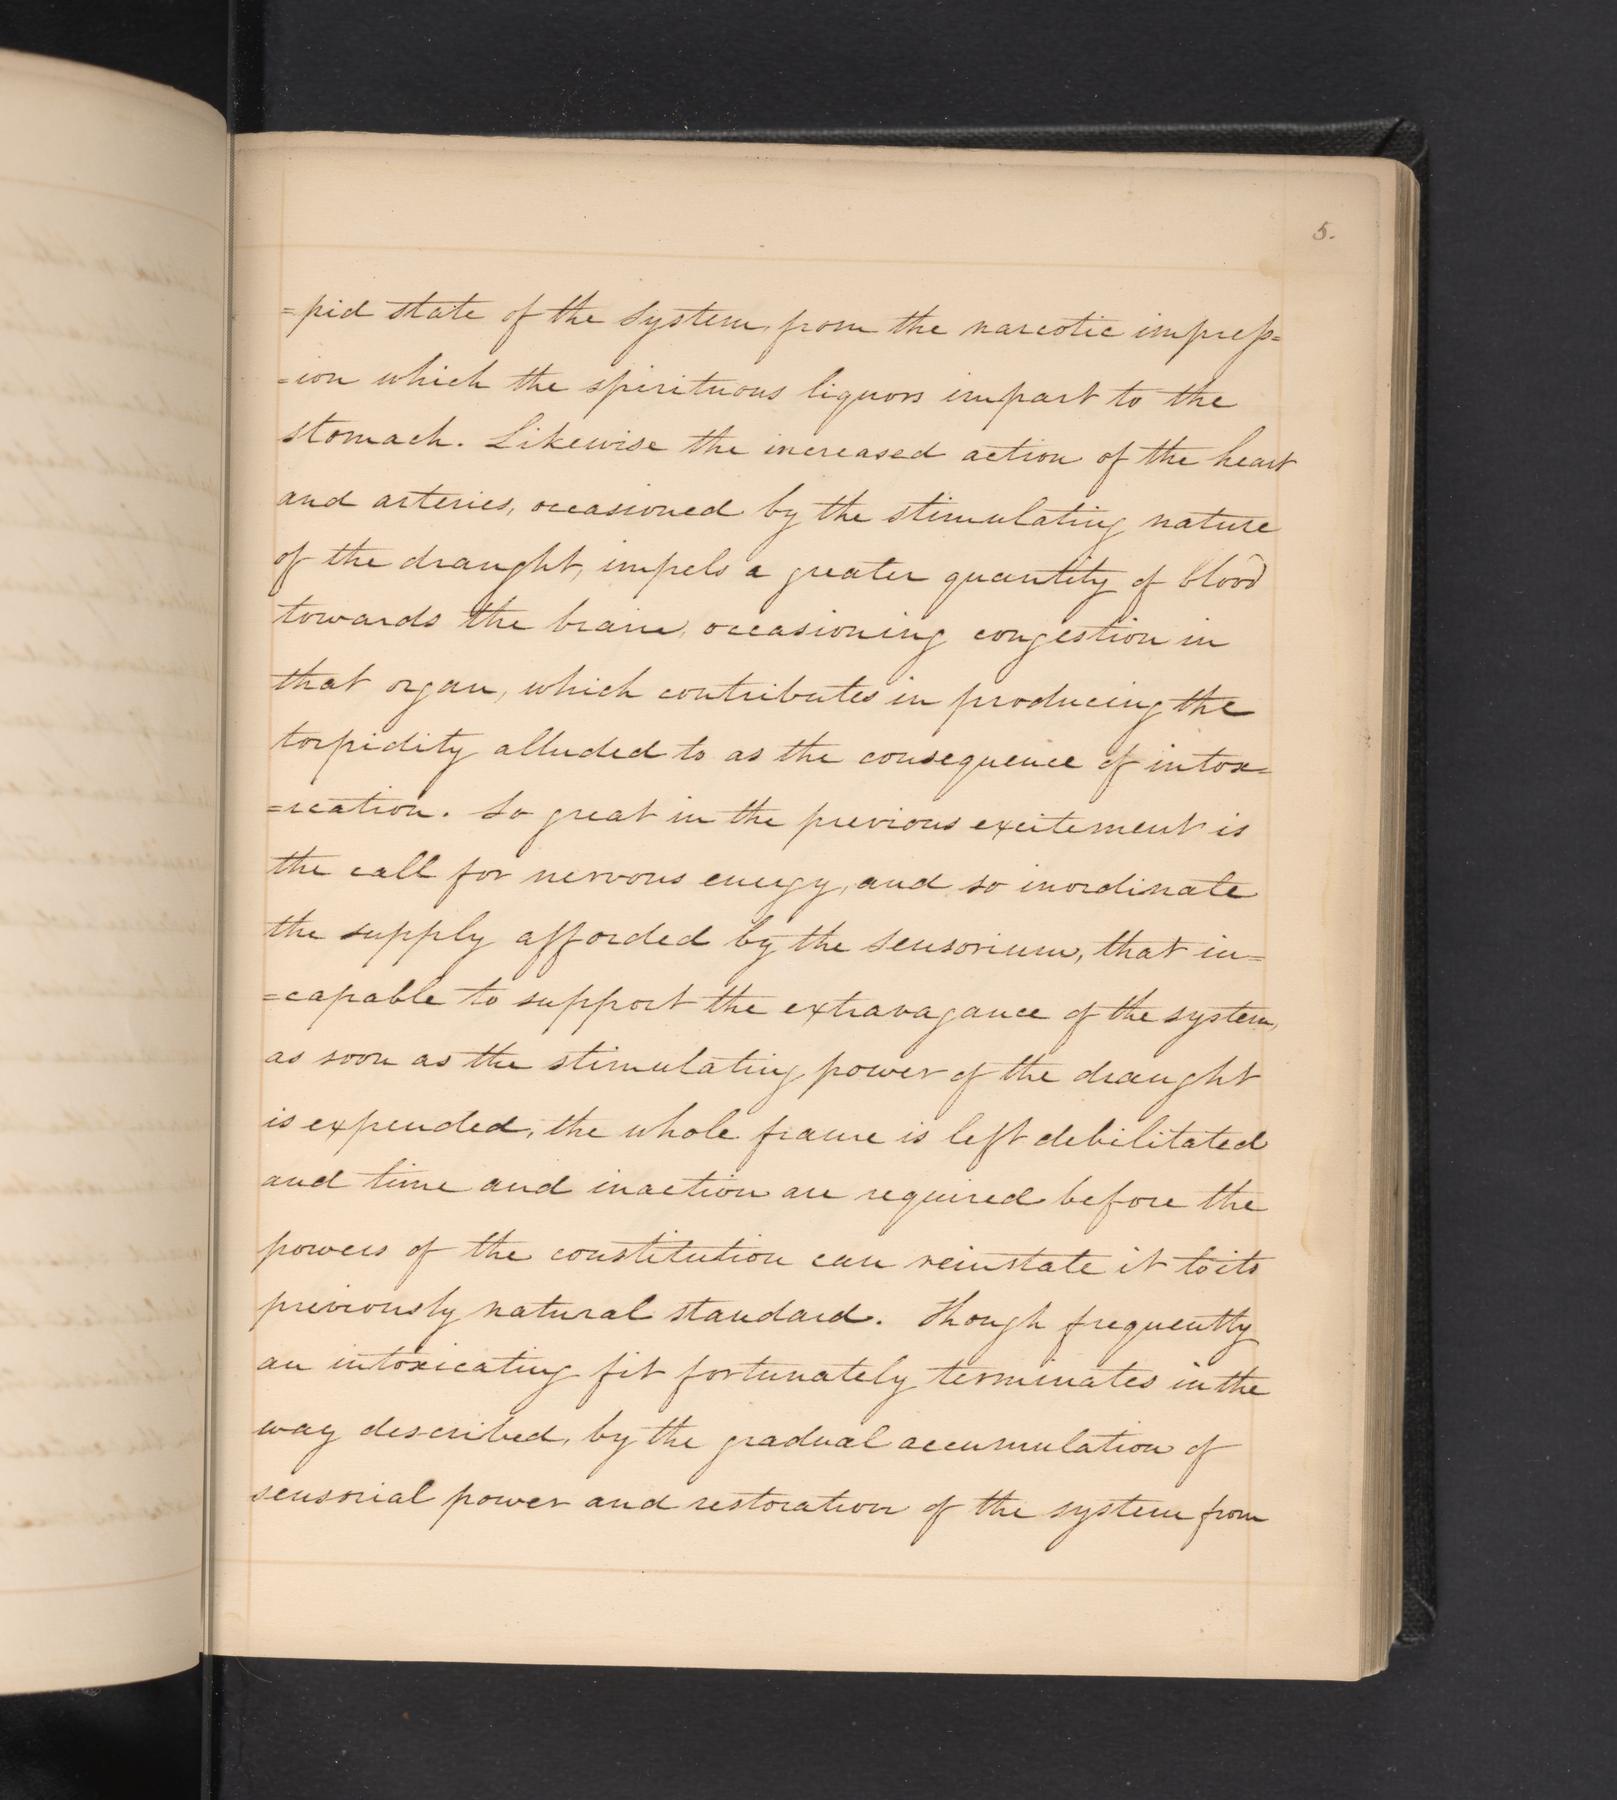 5.
=pid state of the system, from the narcotic impress=
=ion which the spirituous liquors impart to the
stomach. Likewise the increased action of the heart
and arteries, occasioned by the stimulating nature
of the draught, impels a greater quantity of blood
towards the brain, occasioning congestion in
that organ, which contributes in producing the
torpidity alluded to as the consequence of intox=
=ication. So great in the previous excitement is
the call for nervous energy, and so inordinate
the supply afforded by the sensorium, that in=
=capable to support the extravagance of the system,
as soon as the stimulating power of the draught
is expended, the whole frame is left debilitated
and time and inaction are required before the
powers of the constitution can reinstate it to its
previously natural standard. Though frequently
an intoxicating fit fortunately terminates in the
way described, by the gradual accumulation of
sensorial power and restoration of the system from